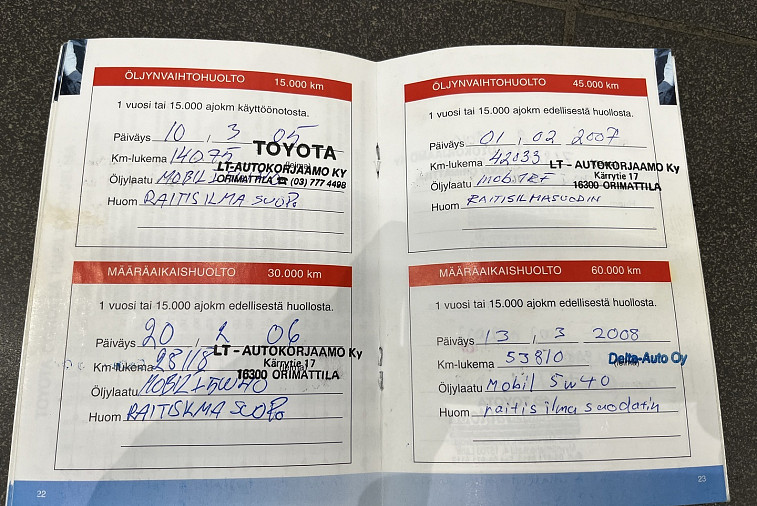 ÖLJYNVAIHTOHUOLTO 15.000 km
1 vuosi tai 15.000 ajokm käyttöönotosta.
Päiväys 10 , 3 05
TOYOTA
Km-lukema 14075
LT-AUTOKORJAAMO KY
Öljylaatu MOBIL
ORIMATTILA ☎ (03) 777 4498
Huom RAITISILMA SUOD.
MÄÄRÄAIKAISHUOLTO 30.000 km
1 vuosi tai 15.000 ajokm edellisestä huollosta.
Päiväys 20 , 2 06
LT - AUTOKORJAAMO Ky
Km-lukema 28118
Kärrytie 17
16300 ORIMATTILA
Öljylaatu MOBIL 5W40
Huom RAITISILMA SUOD.
22
ÖLJYNVAIHTOHUOLTO 45.000 km
1 vuosi tai 15.000 ajokm edellisestä huollosta.
Päiväys 01 , 02 2007
Km-lukema 42033
LT - AUTOKORJAAMO Ky
Kärrytie 17
Öljylaatu
16300 ORIMATTILA
Huom RAITISILMASUODIN
MÄÄRÄAIKAISHUOLTO 60.000 km
1 vuosi tai 15.000 ajokm edellisestä huollosta.
Päiväys 13 , 3 2008
Km-lukema 53810
Delta-Auto Oy
Öljylaatu Mobil 5w40
Huom raitis ilma suodatin
23